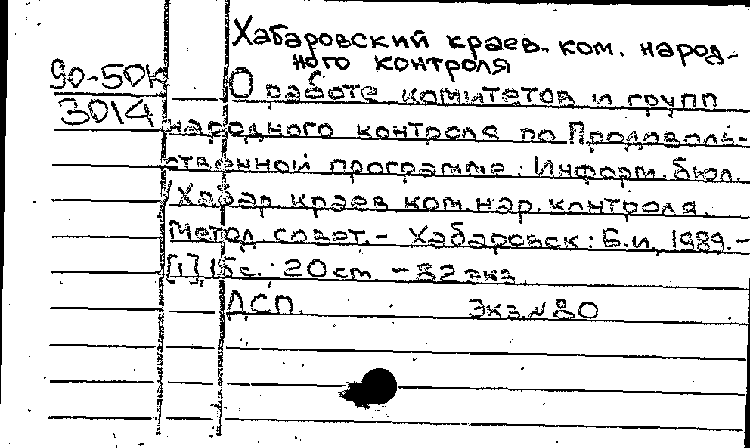 Хабаровский краев. ком. народ-
ного контроля
90-5DK
3014
О работе комитетов и групп
народного контроля по Продоволь-
ственной программе: Информ. бюл.
/Хабар. краев. ком. нар. контроля.
Метод. совет. - Хабаровск: Б.и, 1989. -
[1], 15 с.; 20 см - 82 экз.
ДСП. Экз. № 80